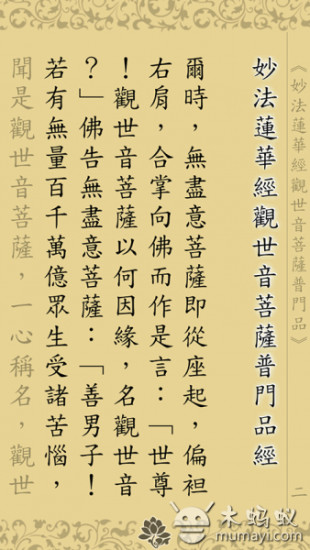 《妙法蓮華經觀世音菩薩普門品》
二
妙法蓮華經觀世音菩薩普門品經
爾時，無盡意菩薩即從座起，偏袒
右肩，合掌向佛而作是言：「世尊
！觀世音菩薩以何因緣，名觀世音
？」佛告無盡意菩薩：「善男子！
若有無量百千萬億眾生受諸苦惱，
聞是觀世音菩薩，一心稱名，觀世
木蚂蚁
mumayi.com